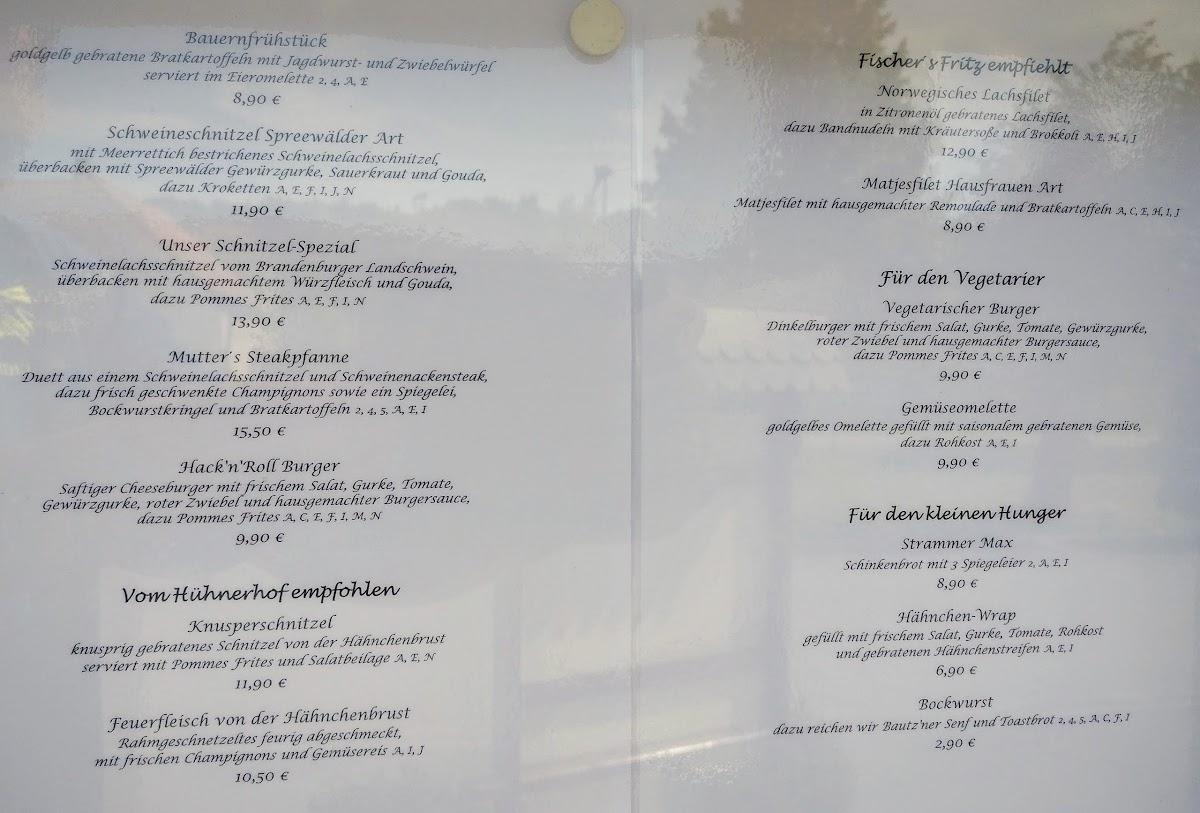 Bauernfrühstück
goldgelb gebratene Bratkartoffeln mit Jagdwurst- und Zwiebelwürfel
serviert im Eieromelette 2, 4, A, E
8,90 €
Schweineschnitzel Spreewälder Art
mit Meerrettich bestrichenes Schweinelachsschnitzel,
überbacken mit Spreewälder Gewürzgurke, Sauerkraut und Gouda,
dazu Kroketten A, E, F, I, J, N
11,90 €
Unser Schnitzel-Spezial
Schweinelachsschnitzel vom Brandenburger Landschwein,
überbacken mit hausgemachtem Würzfleisch und Gouda,
dazu Pommes Frites A, E, F, I, N
13,90 €
Mutter´s Steakpfanne
Duett aus einem Schweinelachsschnitzel und Schweinenackensteak,
dazu frisch geschwenkte Champignons sowie ein Spiegelei,
Bockwurstkringel und Bratkartoffeln 2, 4, 5, A, E, I
15,50 €
Hack'n'Roll Burger
Saftiger Cheeseburger mit frischem Salat, Gurke, Tomate,
Gewürzgurke, roter Zwiebel und hausgemachter Burgersauce,
dazu Pommes Frites A, C, E, F, I, M, N
9,90 €
Vom Hühnerhof empfohlen
Knusperschnitzel
knusprig gebratenes Schnitzel von der Hähnchenbrust
serviert mit Pommes Frites und Salatbeilage A, E, N
11,90 €
Feuerfleisch von der Hähnchenbrust
Rahmgeschnetzeltes feurig abgeschmeckt,
mit frischen Champignons und Gemüsereis A, I, J
10,50 €
Fischer´s Fritz empfiehlt
Norwegisches Lachsfilet
in Zitronenöl gebratenes Lachsfilet,
dazu Bandnudeln mit Kräutersoße und Brokkoli A, E, H, I, J
12,90 €
Matjesfilet Hausfrauen Art
Matjesfilet mit hausgemachter Remoulade und Bratkartoffeln A, C, E, H, I, J
8,90 €
Für den Vegetarier
Vegetarischer Burger
Dinkelburger mit frischem Salat, Gurke, Tomate, Gewürzgurke,
roter Zwiebel und hausgemachter Burgersauce,
dazu Pommes Frites A, C, E, F, I, M, N
9,90 €
Gemüseomelette
goldgelbes Omelette gefüllt mit saisonalem gebratenen Gemüse,
dazu Rohkost A, E, I
9,90 €
Für den kleinen Hunger
Strammer Max
Schinkenbrot mit 3 Spiegeleier 2, A, E, I
8,90 €
Hähnchen-Wrap
gefüllt mit frischem Salat, Gurke, Tomate, Rohkost
und gebratenen Hähnchenstreifen A, E, I
6,90 €
Bockwurst
dazu reichen wir Bautz'ner Senf und Toastbrot 2, 4, 5, A, C, F, I
2,90 €